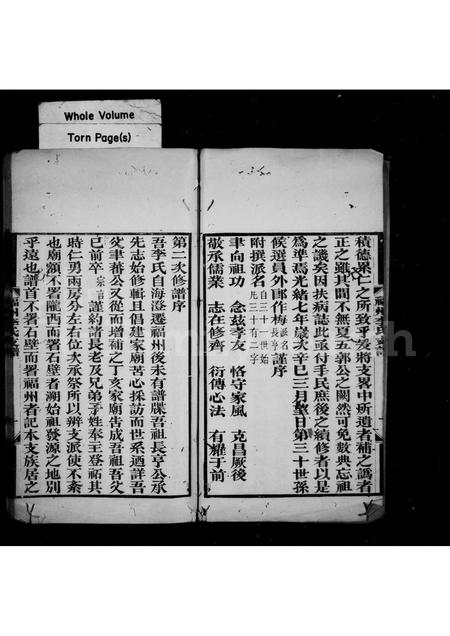 Whole Volume
Torn Page(s)
積德累仁之所致乎爰將支畧中所遺者補之譌者
正之雖其間不無夏五郭公之闕然可免數典忘祖
之譏矣因扶病誌此亟付手民庶後之續修者以是
為準焉光緒七年歲次辛巳三月望日第三十世孫
候選員外郎作梅派名長亨謹序
附撰派名自三十一世始凡三十有二字
聿向祖功 念茲孝友 恪守家風 克昌厥後
敬承儒業 志在修齊 衍傳心法 有耀于前
第二次修譜序
吾李氏自海澄遷福州後未有譜牒吾祖長亨公承
先志始修輯且倡建家廟苦心採訪而世系迺詳吾
父聿蕃公又從而增補之丁亥家廟告成吾祖吾父
已前卒宗言謹約諸長老及兄弟子姓奉主登祐其
時仁男兩房分左右位次承祭所以辨支派使不紊
也廟額不署隴西而署石壁者溯始祖發源之地別
乎遠也譜首不署石壁而署福州者記本支族居之